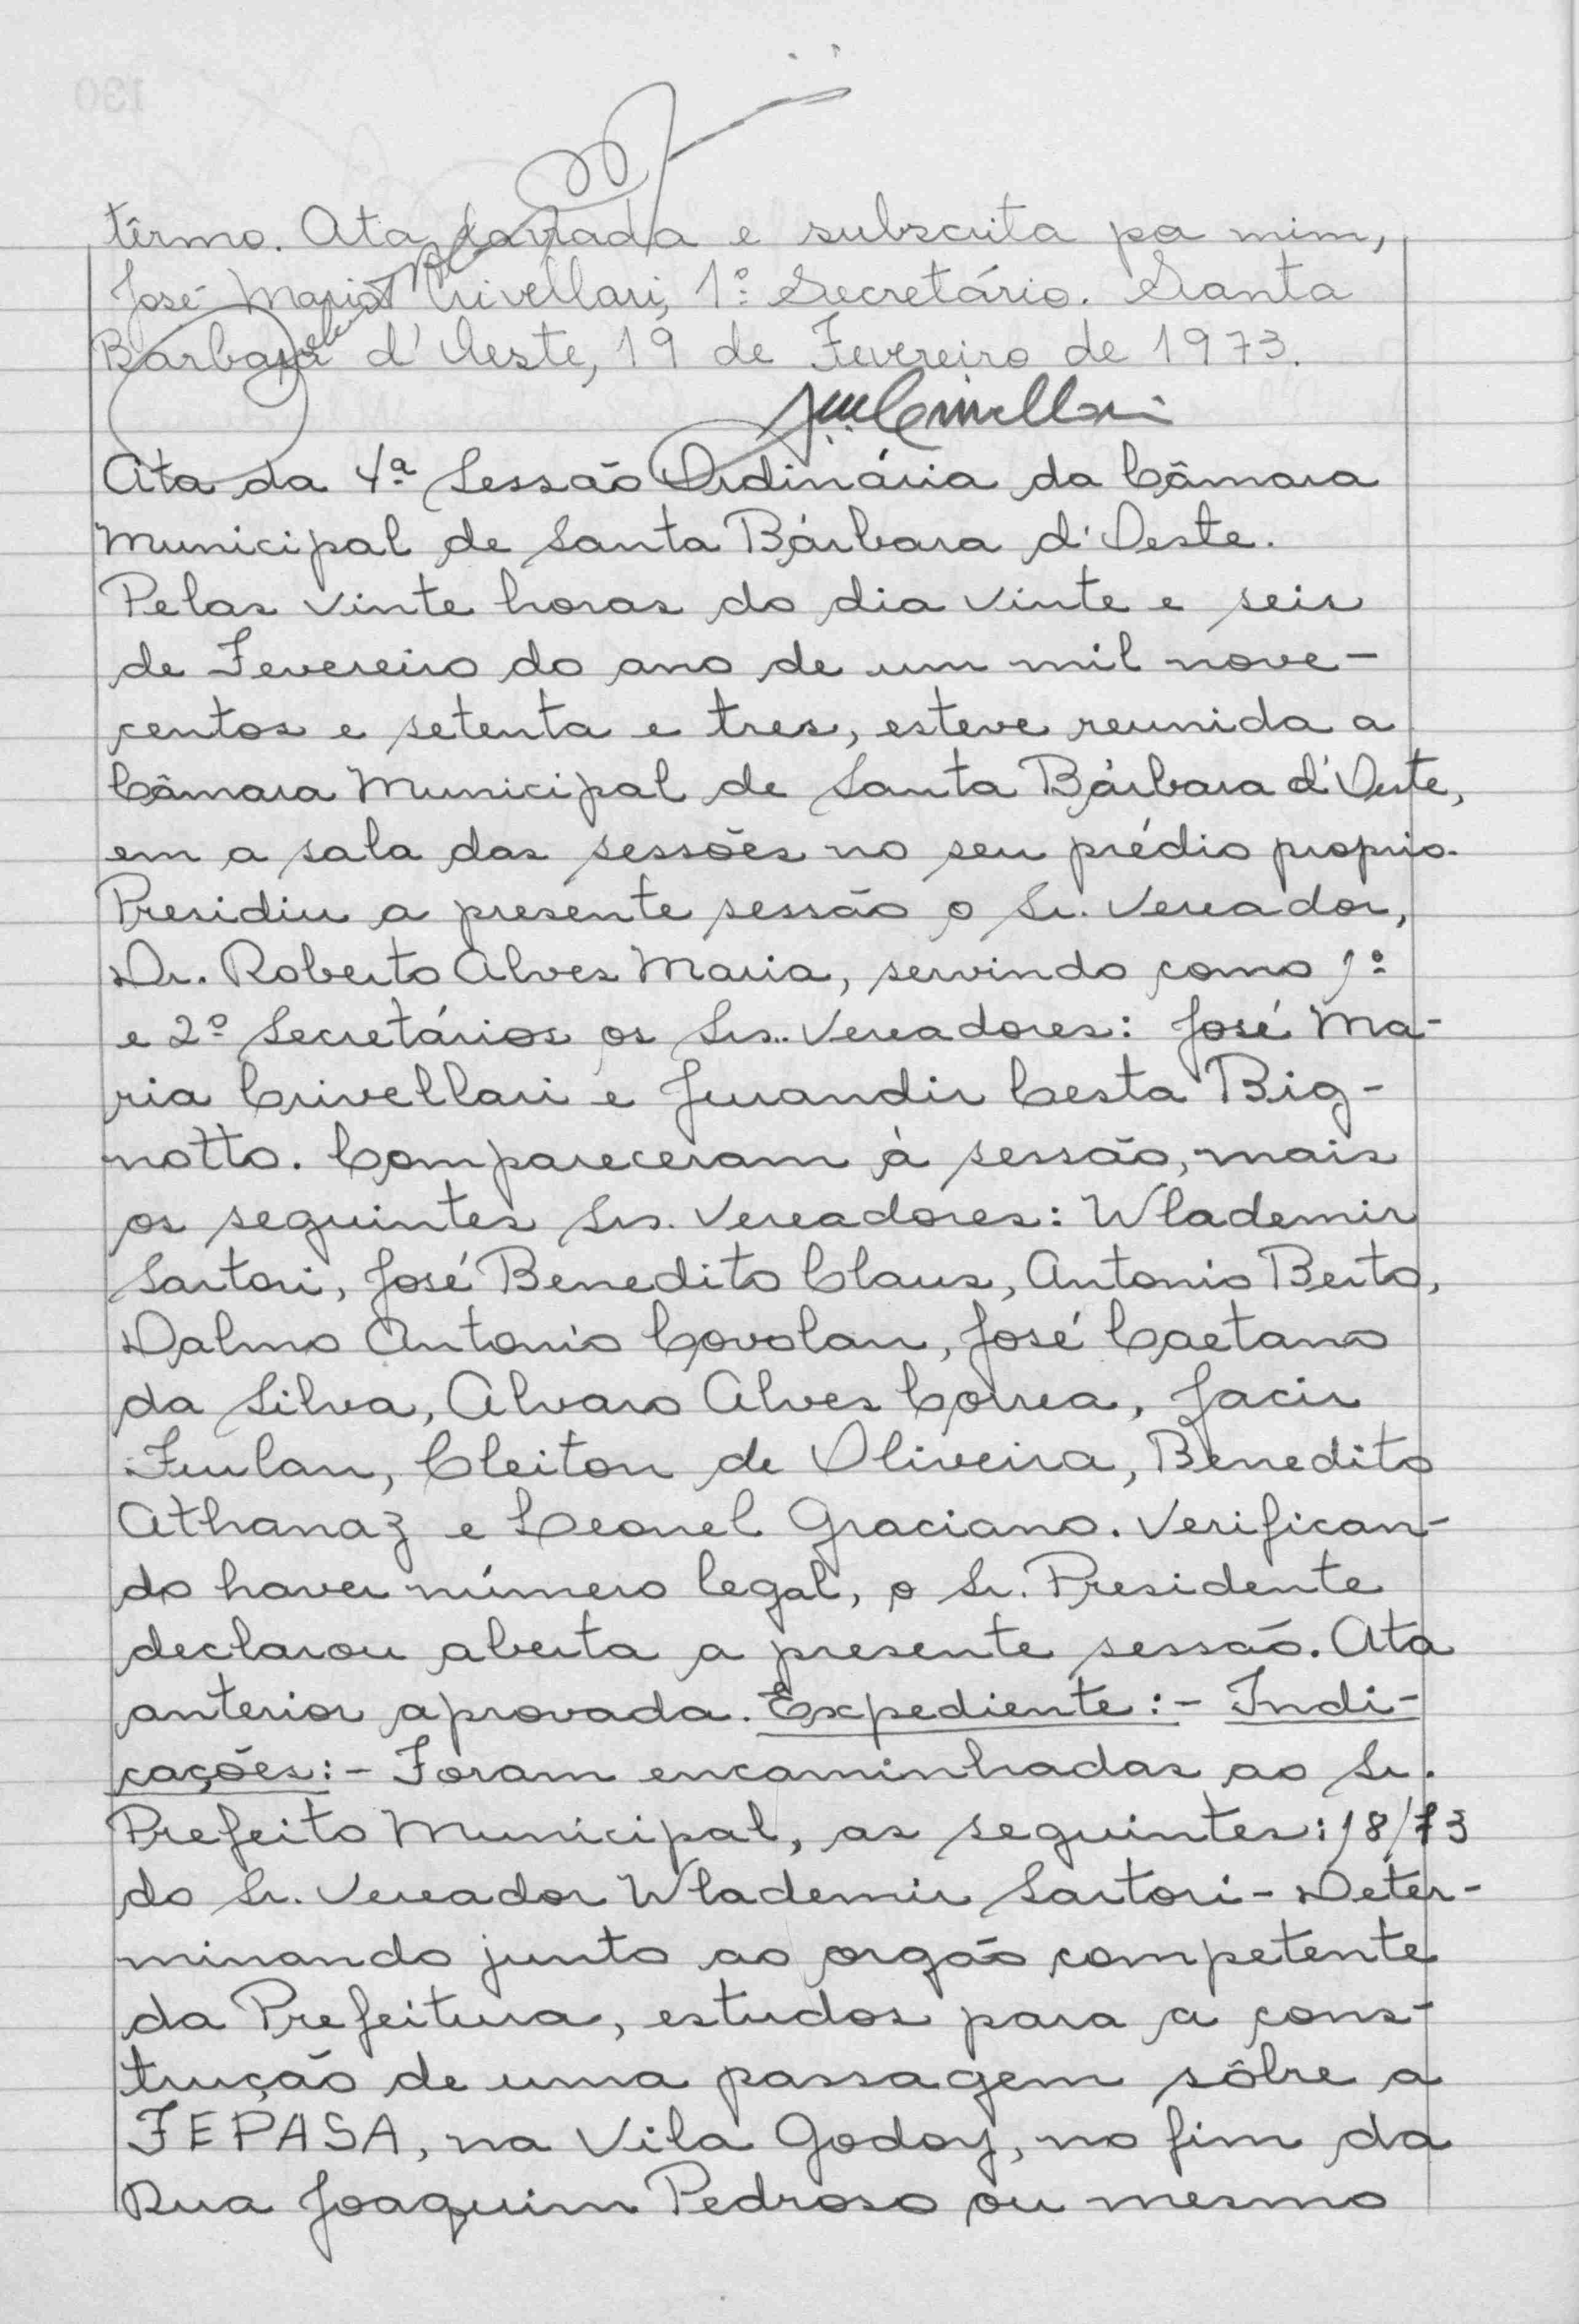 têrmo. Ata lavrada e subscrita po mim,
José Maria Crivellari, 1º Secretário. Santa
Barbara d'Oeste, 19 de Fevereiro de 1973.
Ata da 4ª Sessão Ordinária da Câmara
Municipal de Santa Bárbara d'Oeste.
Pelas vinte horas do dia vinte e seis
de Fevereiro do ano de um mil nove-
centos e setenta e tres, esteve reunida a
Câmara Municipal de Santa Bárbara d'Oeste,
em a sala das sessões no seu prédio proprio.
Presidiu a presente sessão o Sr. Vereador,
Dr. Roberto Alves Maria, servindo como 1º
e 2º Secretários os Srs. Vereadores: José Ma-
ria Crivellari e Jurandir Cesta Big-
notto. Compareceram à sessão, mais
os seguintes Srs. Vereadores: Wlademir
Sartori, José Benedito Claus, Antonio Berto,
Dalmo Antonio Covolan, José Caetano
da Silva, Alvaro Alves Correa, Jacir
Furlan, Cleiton de Oliveira, Benedito
Athanaz e Leonel Graciano. Verifican-
do haver número legal, o Sr. Presidente
declarou aberta a presente sessão. Ata
anterior aprovada. Expediente:- Indi-
cações:- Foram encaminhadas ao Sr.
Prefeito Municipal, as seguintes: 18/73
do Sr. Vereador Wlademir Sartori - Deter-
minando junto ao orgão competente
da Prefeitura, estudos para a cons-
trução de uma passagem sôbre a
FEPASA, na Vila Godoy, no fim da
Rua Joaquim Pedroso ou mesmo